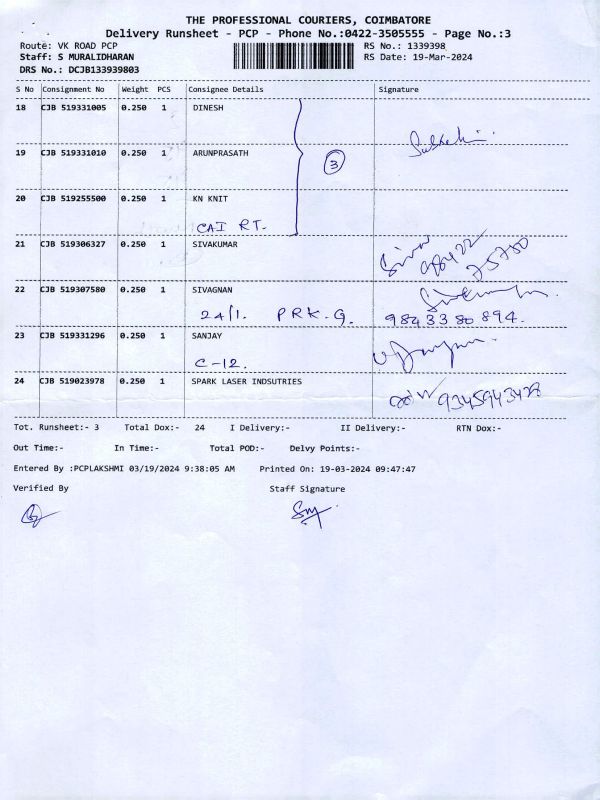 THE PROFESSIONAL COURIERS, COIMBATORE
Delivery Runsheet - PCP - Phone No.:0422-3505555 - Page No.:3
Route: VK ROAD PCP RS No.: 1339398
Staff: S MURALIDHARAN RS Date: 19-Mar-2024
DRS No.: DCJB133939803
S No Consignment No Weight PCS Consignee Details Signature
18 CJB 519331005 0.250 1 DINESH
19 CJB 519331010 0.250 1 ARUNPRASATH
3
20 CJB 519255500 0.250 1 KN KNIT
CAI RT.
21 CJB 519306327 0.250 1 SIVAKUMAR
Siva
98422
75750
22 CJB 519307580 0.250 1 SIVAGNAN
24/1. PRK.G. 9843380894.
23 CJB 519331296 0.250 1 SANJAY
C-12.
24 CJB 519023978 0.250 1 SPARK LASER INDSUTRIES
9345943428
Tot. Runsheet:- 3 Total Dox:- 24 I Delivery:- II Delivery:- RTN Dox:-
Out Time:- In Time:- Total POD:- Delvy Points:-
Entered By :PCPLAKSHMI 03/19/2024 9:38:05 AM Printed On: 19-03-2024 09:47:47
Verified By Staff Signature